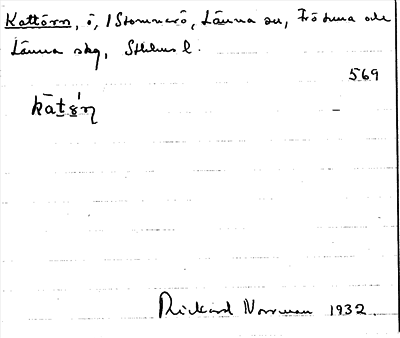 Kattörn, ö, / Stommarö, Länna sn, Frötuna och
Länna skg, Sthlms l.
569
Rickard Norrman 1932.